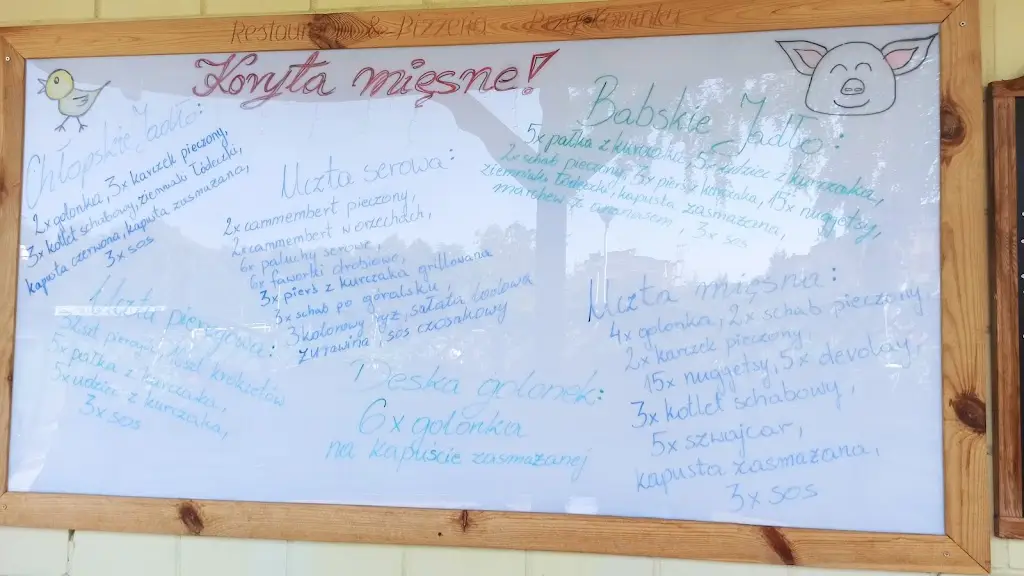 Restauracja & Pizzeria Przy Kominku
Koryta mięsne!
Chłopskie Jadło:
2x golonka, 3x karczek pieczony,
3x kotlet schabowy, ziemniaki łódeczki,
kapusta czerwona, kapusta zasmażana,
3x sos
Uczta serowa:
2x cammembert pieczony,
2x cammembert w orzechach,
6x paluchy serowe,
6x faworki drobiowe,
3x pierś z kurczaka grillowana
3x schab po góralsku
3 kolorowy ryż, sałata lodowa
żurawina, sos czosnkowy
Babskie Jadło:
5x pałka z kurczaka, 5x udziec z kurczaka,
2x schab pieczony, 3x pierś z kurczaka, 15x nuggetsy,
ziemniaki łódeczki, kapusta zasmażana,
marchew z ananasem, 3x sos
Uczta pierogowa:
pierogów, krokietów
5x pałka z kurczaka,
5x udziec z kurczaka,
3x sos
Deska golonek:
6x golonka
na kapuście zasmażanej
Uczta mięsna:
4x golonka, 2x schab pieczony,
2x karczek pieczony,
15x nuggetsy, 5x devolay,
3x kotlet schabowy,
5x szwajcar,
kapusta zasmażana,
3x sos